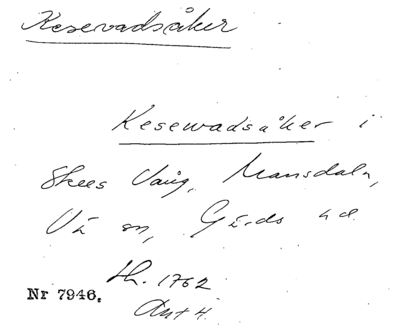 Kesevadsåker
Kesewadsåker i
Skees Vång, Mansdala,
Vä sn, Gärds hd
th. 1762
Akt 4.
Nr 7946.